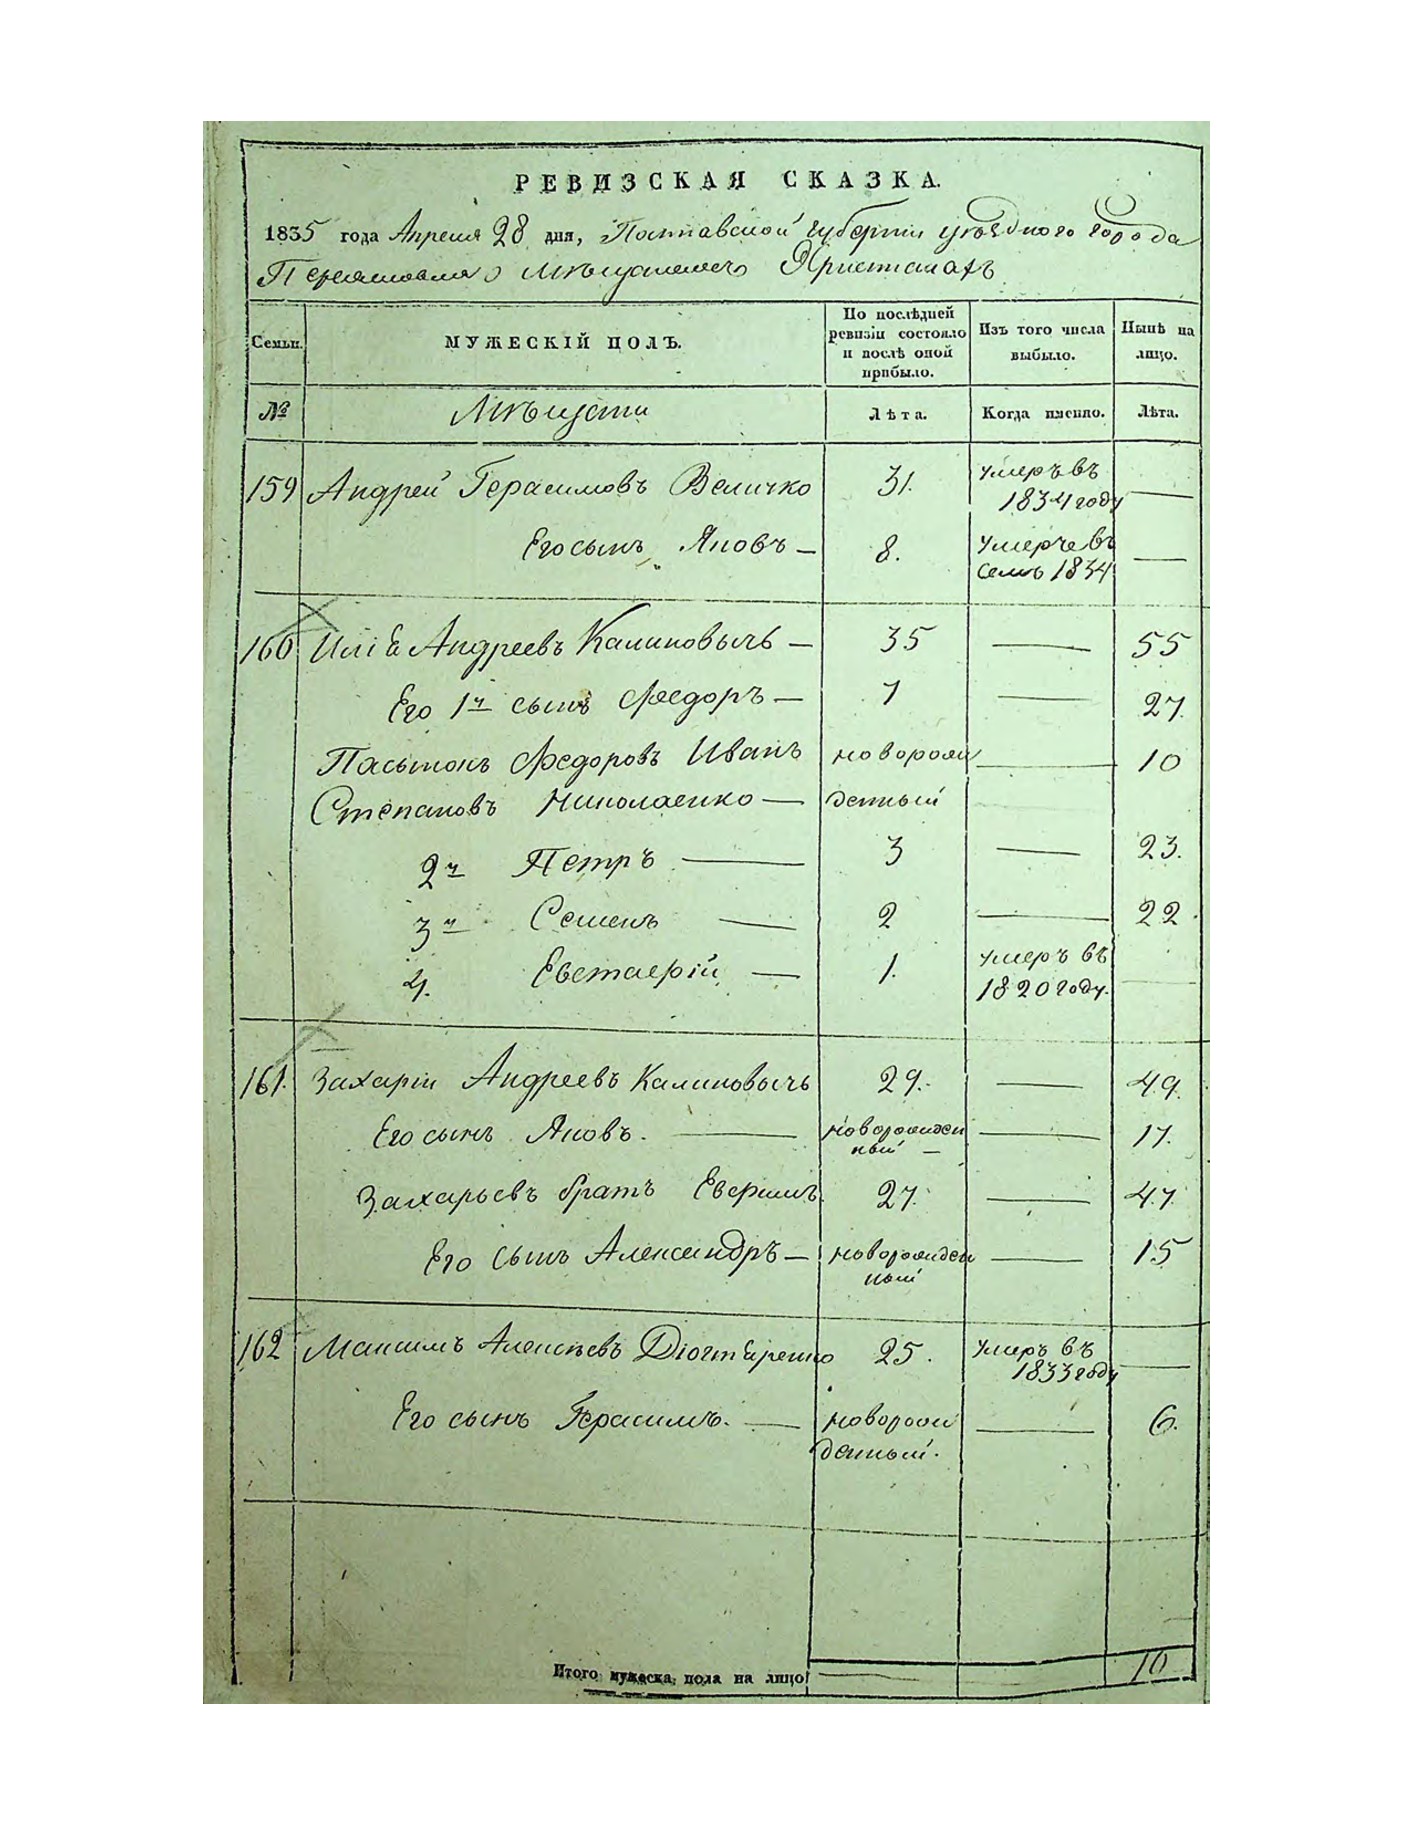 РЕВИЗСКАЯ СКАЗКА.
1835 года Апреля 28 дня, Полтавской губернии уезднаго города
Переяслова о мѣщанехъ Христианахъ
Семьи.
МУЖЕСКІЙ ПОЛЪ.
По послѣдней ревизіи состояло и послѣ оной прибыло.
Изъ того числа выбыло.
Нынѣ на лицо.
№ Мѣщани Лѣта. Когда именно. Лѣта.
159 Андрей Герасимовъ Величко 31. умеръ въ 1834 году —
Его сынъ Яковъ — 8. умерже въ семъ 1834 —
160 Андреевъ Калиновычъ — 35 — 55
Его 1й сынъ Федоръ — 7 — 27.
Пасынокъ Федоровъ Иванъ новорож — 10
Степановъ Николаенко — денный
2й Петръ — 3 — 23.
3й Семенъ — 2 — 22.
4. — 1. умеръ въ 1820 году.
161. Захарій Андреевъ Калиновычъ 29. — 49.
Его сынъ Яковъ. — новорожден ный — — 17.
Захарьевъ братъ 27. — 47.
Его сынъ Александръ — новорожден ный — 15
162 Максимъ Алексѣевъ 25. умеръ въ 1833 году —
Его сынъ Герасимъ. — новорож денный. — 6.
Итого мужеска пола на лицо — 10